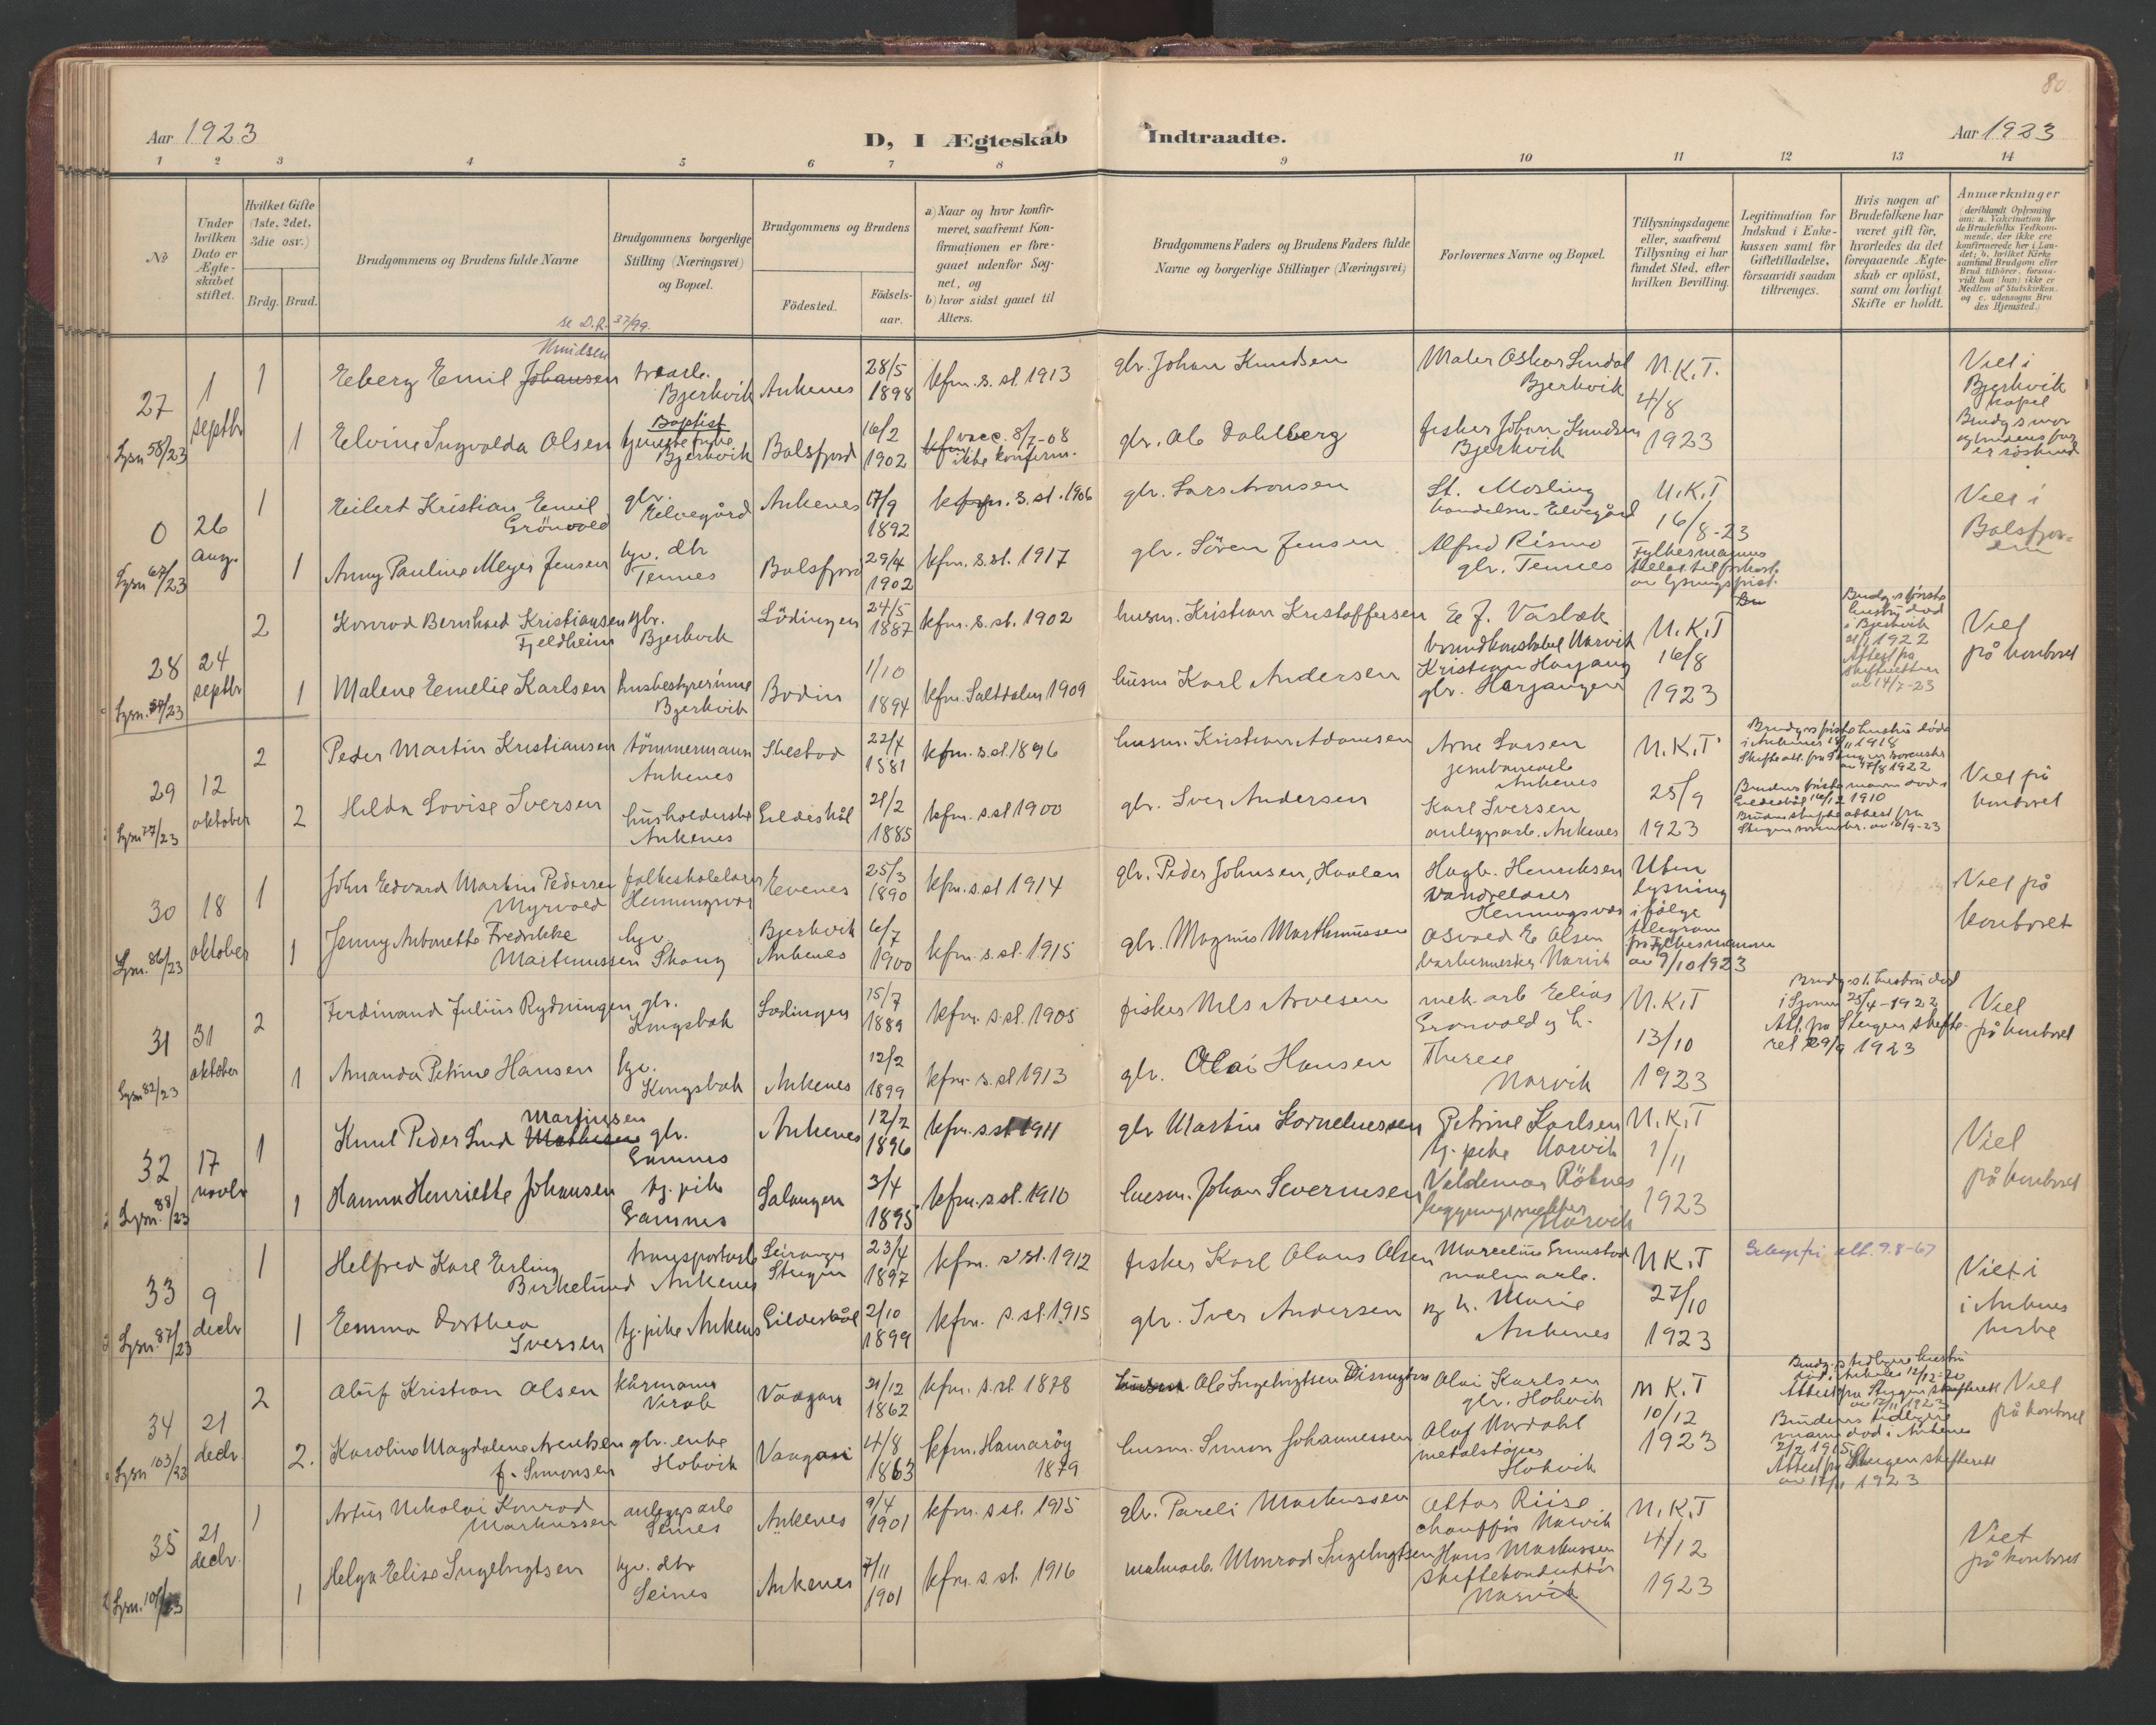 80
Aar 1923
D, I Ægteskab
Indtraadte.
Aar 1923
1 2 3 4 5 6 7 8 9 10 11 12 13 14
No
Under hvilken Dato er Ægteskabet stiftet.
Hvilket Gifte (1ste, 2det, 3die osv.)
Brdg. Brud.
Brudgommens og Brudens fulde Navne
Brudgommens borgerlige Stilling (Næringsvei) og Bopæl.
Brudgommens og Brudens
Födested.
Födselsaar.
a) Naar og hvor konfirmeret, saafremt Konfirmationen er foregaaet udenfor Sognet, og
b) hvor sidst gaaet til Alters.
Brudgommens Faders og Brudens Faders fulde Navne og borgerlige Stillinger (Næringsvei)
Forlovernes Navne og Bopæl.
Tillysningsdagene eller, saafremt Tillysning ei har fundet Sted, efter hvilken Bevilling.
Legitimation for Indskud i Enkekassen samt for Giftetilladelse, forsaavidt saadan tiltrænges.
Hvis nogen af Brudefolkene har været gift för, hvorledes da det foregaaende Ægteskab er oplöst, samt om lovligt Skifte er holdt.
Anmærkninger
(deriblandt Oplysning om: a. Vakcination for de Brudefolks Vedkommende, der ikke ere konfirmerede her i Landet; b. hvilket Kirkesamfund Brudgom eller Brud tilhörer, forsaavidt han (hun) ikke er Medlem af Statskirken, og c. udensogns Brudes Hjemsted.)
se D.R. 37/99.
27
Lysn 58/23
1 septbr
1
Knudsen
Edberg Emil Johansen
Bjerkvik
Ankenes
28/5 1898
kfm. s. st. 1913
gbr. Johan Knudsen
Maler Oskar Lindal
Bjerkvik
N.K.T.
4/8
1923
Viet i
Bjerkvik
kapel
1
Elvine Ingvalda Olsen
Baptist
Bjerkvik
Balsfjord
16/2 1902
vacc. 8/7-08
ikke konfirm.
gbr. Ole Dahlberg
fisker Johan Knudsen
Bjerkvik
0
Lysn 67/23
26 aug.
1
Eilert Kristian Emil
Grönvold
gbr.
Elvegård
Ankenes
17/9 1892
kfm. s. st. 1906
gbr. Lars Aronsen
St. Mosling
handelsm. Elvegård
N.K.T
16/8-23
Fylkesmannens
Viet i
Balsfjorden
1
Anny Pauline Meyer Jensen
hjv. dtr
Tennes
Balsfjord
29/4 1902
kfm. s. st. 1917
gbr. Sören Jensen
Alfred Rismo
gbr. Tennes
28
Lysn. 54/23
24 septbr
2
Konrad Bernhard Kristiansen
Fjeldheim
gbr.
Bjerkvik
Lödingen
24/5 1887
kfm. s. st. 1902
husm. Kristian Kristoffersen
E. J. Vasbæk
brandkonstabel Narvik
N.K.T
16/8
1923
Brudg.s förste
hustru död
i Bjerkvik
21/1 1922
Attest fra
skifteretten
av 14/7-23
Viet
på kontoret
1
Malene Emelie Karlsen
husbestyrerinne
Bjerkvik
Bodin
1/10 1894
kfm. Saltdalen 1909
husm Karl Andersen
Kristian Harjang
gbr. Harjangen
29
Lysn 77/23
12 oktober
2
Peder Martin Kristiansen
tömmermann
Ankenes
22/4 1881
kfm. s. st 1896
husm. Kristian Adamsen
Arne Larsen
jernbanearb
Ankenes
N.K.T
25/9
1923
Brudg.s förste hustru död
i Ankenes 18/11 1918
Viet på
kontoret
2
Hilda Lovise Iversen
husholderske
Ankenes
Gildeskål
21/2 1885
kfm. s. st 1900
gbr. Iver Andersen
Karl Iversen
anleggsarb. Ankenes
Brudens förste mann död i
Gildeskål 16/12 1910
30
Lysn. 86/23
18 oktober
1
John Edvard Martin Pedersen
Myrvold
folkeskolelærer
Henningsvær
Evenes
25/3 1890
kfm. s. st 1914
gbr. Peder Johnsen
Hagb. Henriksen
Henningsvær
Uten
lysning
ifölge
telegram
fra fylkesmannen
av 9/10 1923
Viet på
kontoret
1
Jenny Antonette Fredrikke
Martinussen
hjv.
Skoug
Bjerkvik
Ankenes
6/7 1900
kfm. s. st. 1915
gbr. Magnus Marthinussen
Osvald E Olsen
barbermester Narvik
31
Lysn 82/23
31 oktober
2
Ferdinand Julius Rydningen
gbr.
Kongsbak
Lödingen
15/7 1889
kfm. s. st. 1905
fisker Nils Arvesen
mek. arb Elias
Grönvold og h.
N.K.T
13/10
1923
Brudg.s 1. hustru död
i Lysvn 25/4-1922
Att. fra Steigen skifteret 29/9 1923
Viet
på kontoret
1
Amanda Petrine Hansen
hjv.
Kongsbak
Ankenes
12/2 1899
kfm. s. st 1913
gbr. Olai Hansen
Therese
Narvik
32
Lysn. 88/23
17 novbr
1
Martinsen
Knut Peder Lind Mathisen
gbr.
Ankenes
12/2 1896
kfm. s. st 1911
gbr Martin Korneliussen
Petrine Karlsen
tj. pike Narvik
N.K.T
1/11
1923
Viet
på kontoret
1
Hanna Henriette Johansen
tj. pike
Salangen
3/4 1895
kfm. s. st. 1910
husm. Johan Severinsen
Valdemar Röknes
Narvik
33
Lysn. 87/23
9 decbr
1
Helfred Karl Erling
Birkelund
transportarb
Ankenes
Leiranger
Steigen
23/4 1897
kfm. s. st. 1912
fisker Karl Olaus Olsen
malmarb.
N.K.T
27/10
1923
att. 9.8-67
Viet i
i Ankenes
kirke
1
Emma Dorthea
Iversen
tj. pike Ankenes
Gildeskål
2/10 1899
kfm. s. st. 1915
gbr. Iver Andersen
og h. Marie
Ankenes
34
Lysn 103/23
21 decbr.
2
Oluf Kristian Olsen
kårmann
Virak
Vaagan
31/12 1862
kfm. s. st. 1878
husm Ole Ingebrigtsen
Olai Karlsen
gbr. Hokvik
N.K.T
10/12
1923
Brudg.s tidligere hustru
död i Ankenes 12/12-20
Viet
på kontoret
2.
Karoline Magdalene Arentsen
f. Simonsen
gbr. enke
Hokvik
Vaagan
4/8 1863
kfm. Hamaröy
1879
husm. Simon Johannessen
Olaf Urdahl
metalstöper
Hokvik
Brudens tidligere
mann död i Ankenes
2/2 1915
Attest fra Steigen skifterett
av 17/11 1923
35
Lysn. 107/23
21 decbr.
1
Artur Nikolai Konrad
Markussen
anleggsarb
Seines
Ankenes
9/4 1901
kfm. s. st. 1915
gbr. Pareli Markussen
Ottar Riise
chaufför Narvik
N.K.T
4/12
1923
Viet
på kontoret
1
Helga Elise Ingebrigtsen
hjv. dtr
Seines
Ankenes
7/11 1901
kfm. s. st. 1916
malmarb. Monrad Ingebrigtsen
Hans Markussen
skiftekonduktör
Narvik